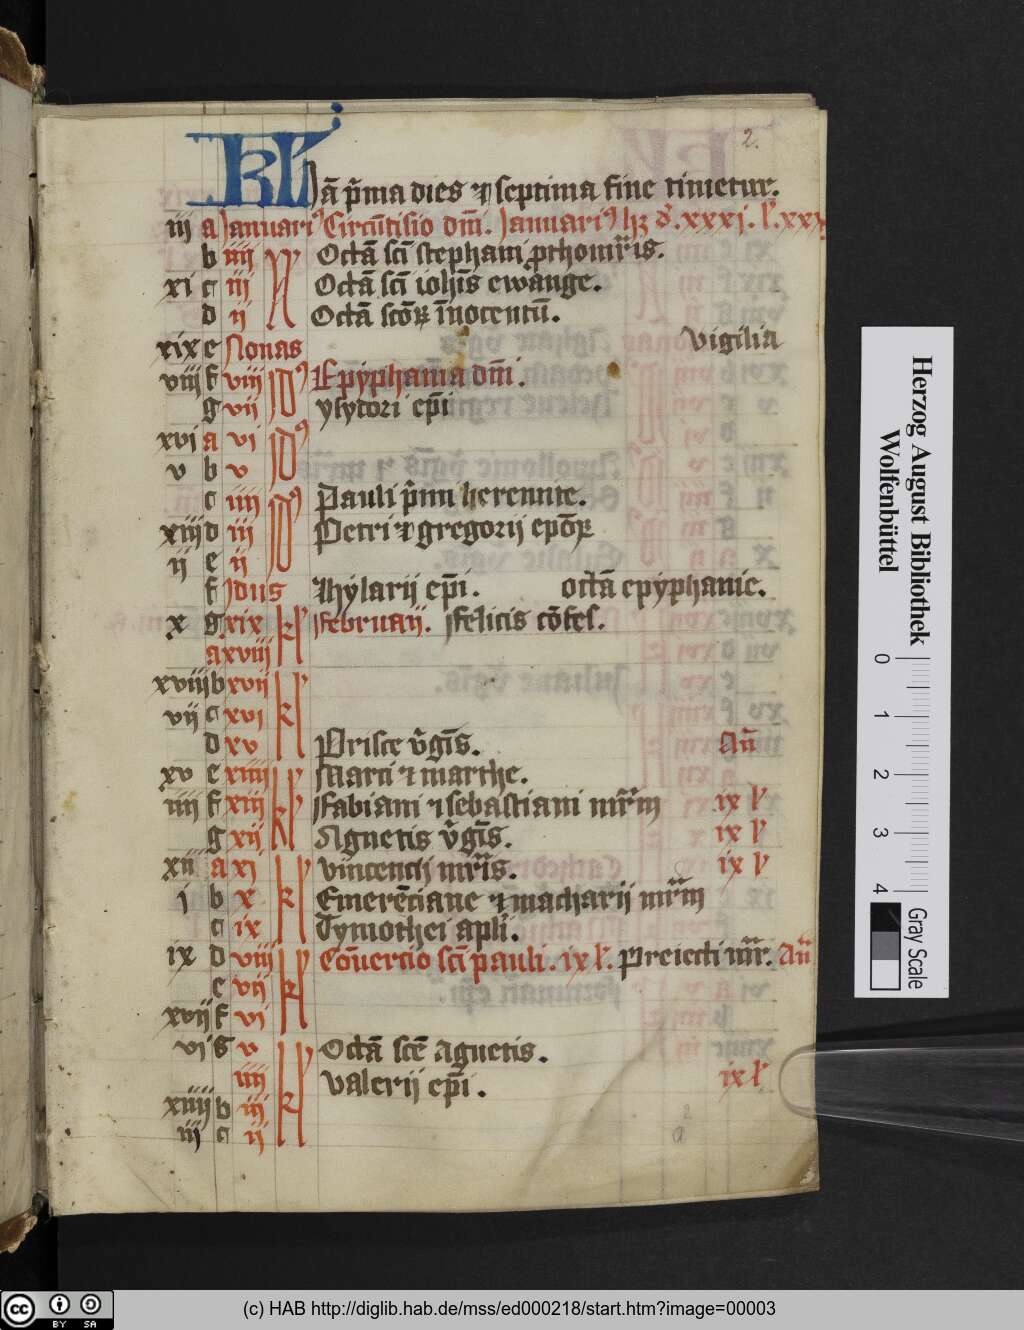 2.
KL Jā p̄ma dies ⁊ septima fine timetur.
iij a Januariꝰ Circūcisio dm̄i. Januariꝰ hꝫ d̓. xxxj. l̓. xxx
b iiij N Octā sc̄i stephani ꝓthom̄ris.
xi c iij Octā sc̄i ioh̄is ewange.
d ij Octā sc̄oꝝ īnocentū.
xix e Nonas vigilia
viij f viij Jdꝰ Epyphania dm̄i.
g vij ysydori ep̄i
xvi a vi Jdꝰ
v b v
c iiij Jdꝰ Pauli p̄mi heremite.
xiij d iij Petri ⁊ gregorij epōꝝ
ij e ij
f Jdus Hylarij ep̄i. octā epyphanie.
x g xix kl Februarij. Felicis cōfes.
a xviij
xviij b xvij kl
vij c xvi
d xv Prisce v̓gīs.
xv e xiiij kl Marii ⁊ marthe.
iiij f xiij Fabiani ⁊ sebastiani mr̄m ix l̓
g xij Agnetis v̓gīs. ix l̓
xij a xi kl vincencij mr̄is. ix l̓
j b x Emerēciane ⁊ macharij mr̄m
c ix Tymothei apl̄i.
ix d viij kl Cōuercio sc̄i pauli. ix l̓. Preiecti mr̄. An̄
e vij
xvij f vi
vi g v kl Octā sc̄e Agnetis.
iiij valerij ep̄i. ix l̓
xiiij b iij
iij c ij
2
a
Herzog August Bibliothek
Wolfenbüttel
0 1 2 3 4
Gray Scale
cc BY SA
(c) HAB http://diglib.hab.de/mss/ed000218/start.htm?image=00003